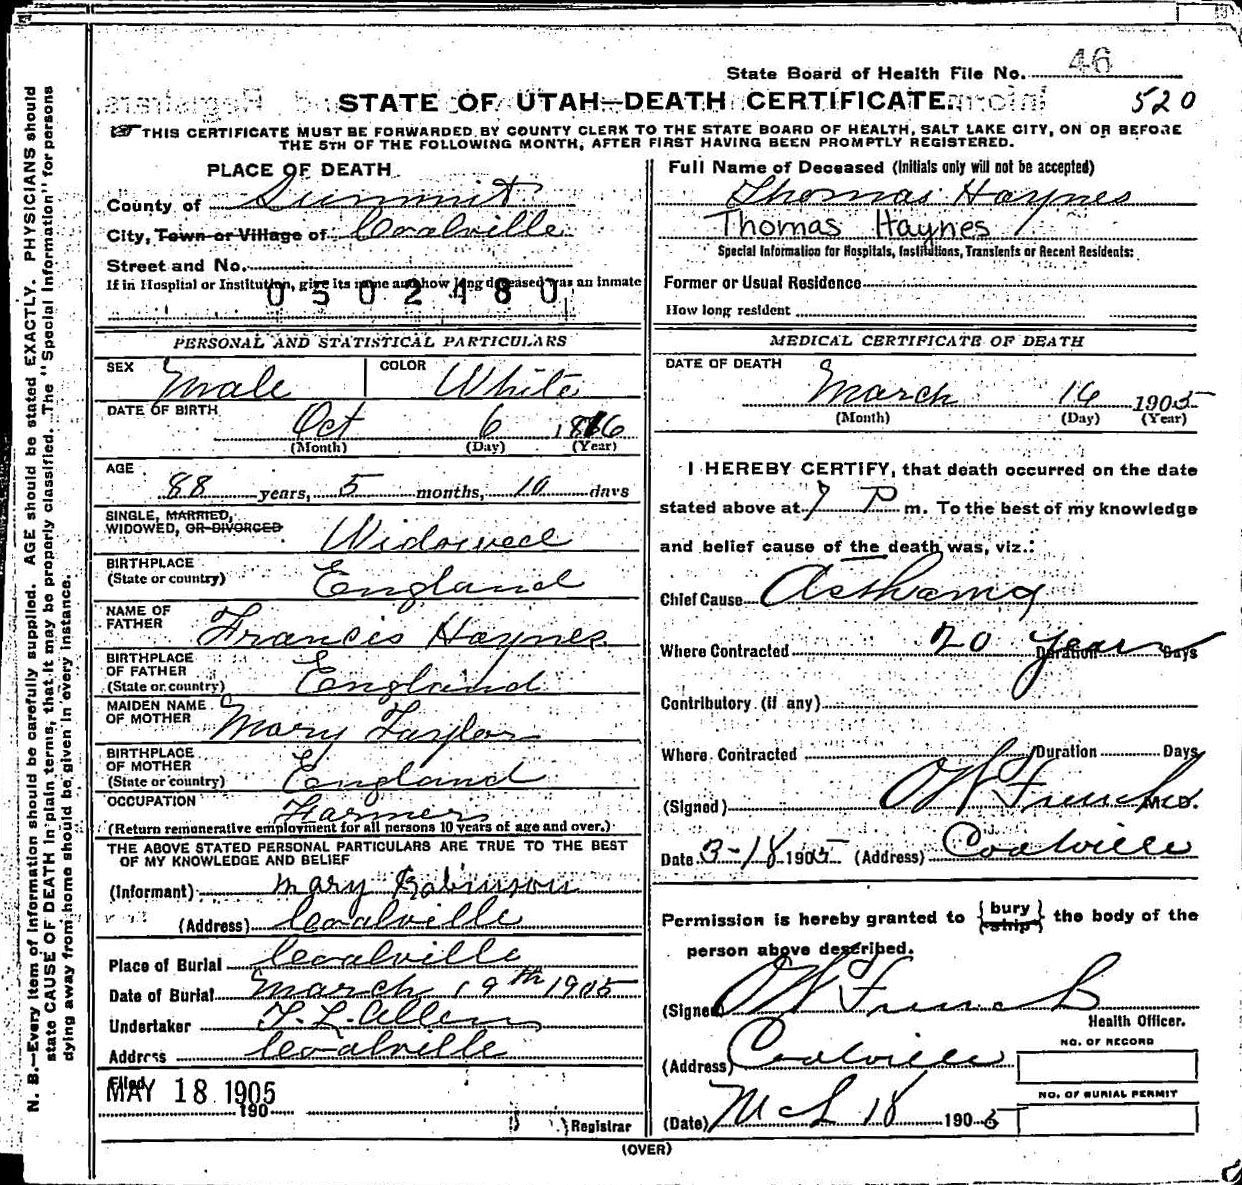 State Board of Health File No. 46
STATE OF UTAH—DEATH CERTIFICATE.
520
☞ THIS CERTIFICATE MUST BE FORWARDED BY COUNTY CLERK TO THE STATE BOARD OF HEALTH, SALT LAKE CITY, ON OR BEFORE
THE 5TH OF THE FOLLOWING MONTH, AFTER FIRST HAVING BEEN PROMPTLY REGISTERED.
N. B.—Every item of information should be carefully supplied. AGE should be stated EXACTLY. PHYSICIANS should
state CAUSE OF DEATH in plain terms, that it may be properly classified. The "Special Information" for persons
dying away from home should be given in every instance.
PLACE OF DEATH
County of Summit
City, Town or Village of Coalville
Street and No.
If in Hospital or Institution, give its name and how long deceased was an inmate
0502480
PERSONAL AND STATISTICAL PARTICULARS
SEX Male COLOR White
DATE OF BIRTH Oct 6 1816
(Month) (Day) (Year)
AGE
88 years, 5 months, 10 days
SINGLE, MARRIED,
WIDOWED, OR DIVORCED Widowed
BIRTHPLACE
(State or country) England
NAME OF
FATHER Francis Haynes
BIRTHPLACE
OF FATHER
(State or country) England
MAIDEN NAME
OF MOTHER Mary Taylor
BIRTHPLACE
OF MOTHER
(State or country) England
OCCUPATION Farmer
(Return remunerative employment for all persons 10 years of age and over.)
THE ABOVE STATED PERSONAL PARTICULARS ARE TRUE TO THE BEST
OF MY KNOWLEDGE AND BELIEF
(Informant) Mary Robinson
(Address) Coalville
Place of Burial Coalville
Date of Burial March 19th 1905
Undertaker T. L. Allen
Address Coalville
Filed
MAY 18 1905
190
Registrar
Full Name of Deceased (Initials only will not be accepted)
Thomas Haynes
Thomas Haynes
Special Information for Hospitals, Institutions, Transients or Recent Residents:
Former or Usual Residence
How long resident
MEDICAL CERTIFICATE OF DEATH
DATE OF DEATH
March 16 1905
(Month) (Day) (Year)
I HEREBY CERTIFY, that death occurred on the date
stated above at 7 P. m. To the best of my knowledge
and belief cause of the death was, viz.:
Chief Cause Asthama
Where Contracted 20 years Duration Days
Contributory (if any)
Where Contracted Duration Days
(Signed) O W French M.D.
Date 3-18 1905 (Address) Coalville
Permission is hereby granted to { bury ship } the body of the
person above described.
(Signed) O W French
Health Officer.
(Address) Coalville
NO. OF RECORD
NO. OF BURIAL PERMIT
(Date) Mch 18 1905
(OVER)